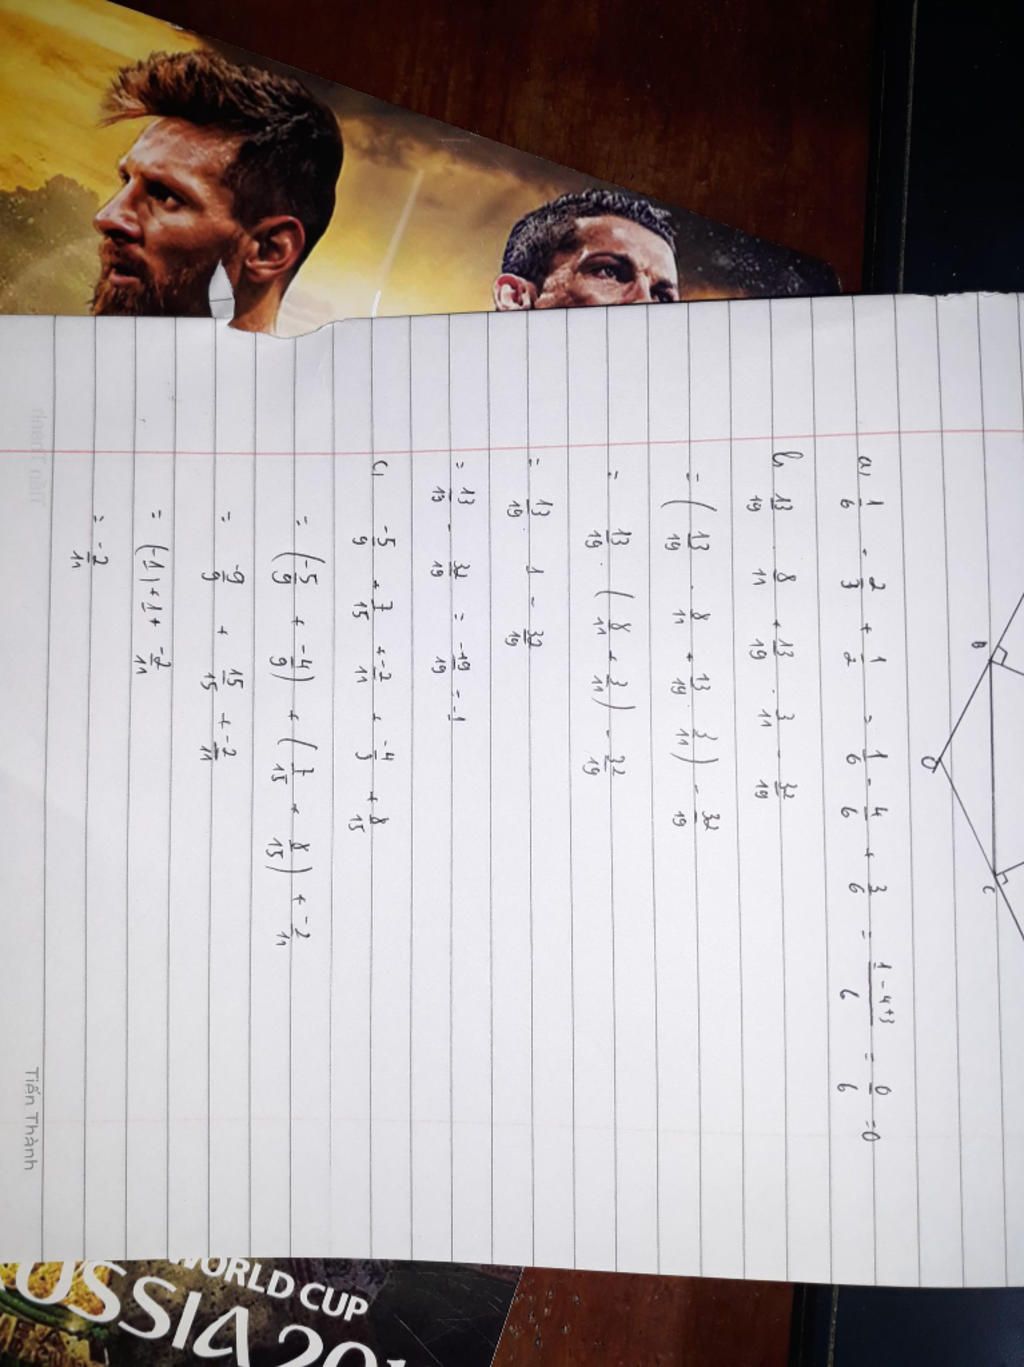 B
O
C
a, 1/6 - 2/3 + 1/2 = 1/6 - 4/6 + 3/6 = (1 - 4 + 3)/6 = 0/6 = 0
b, 13/19 . 8/11 + 13/19 . 3/11 - 32/19
= (13/19 . 8/11 + 13/19 3/11) - 32/19
= 13/19 . (8/11 + 3/11) - 32/19
= 13/19 . 1 - 32/19
= 13/19 - 32/19 = -19/19 = -1
c, -5/9 + 7/15 + -2/11 + -4/9 + 8/15
= (-5/9 + -4/9) + (7/15 + 8/15) + -2/11
= -9/9 + 15/15 + -2/11
= (-1) + 1 + -2/11
= -2/11
Tiến Thành
WORLD CUP
RUSSIA 20